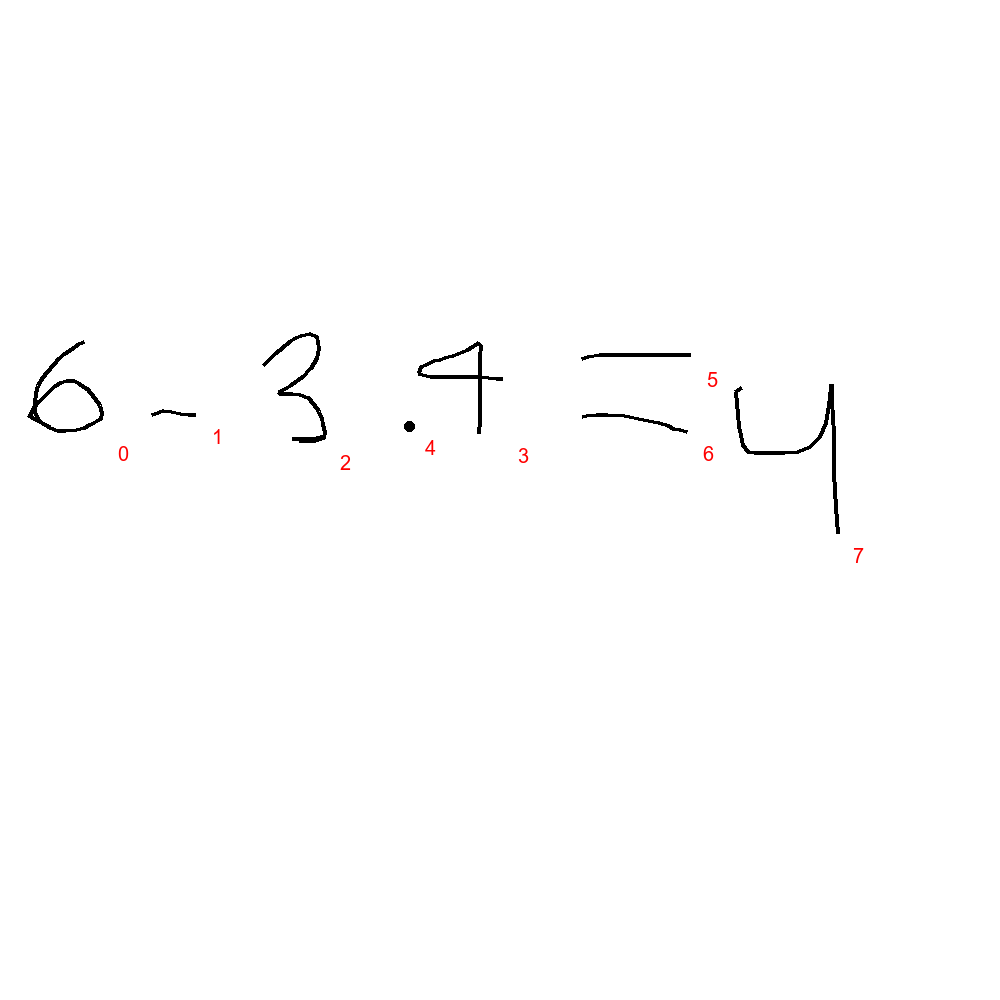 6 - 3.4 = y
0 1 2 4 3 5 6 7